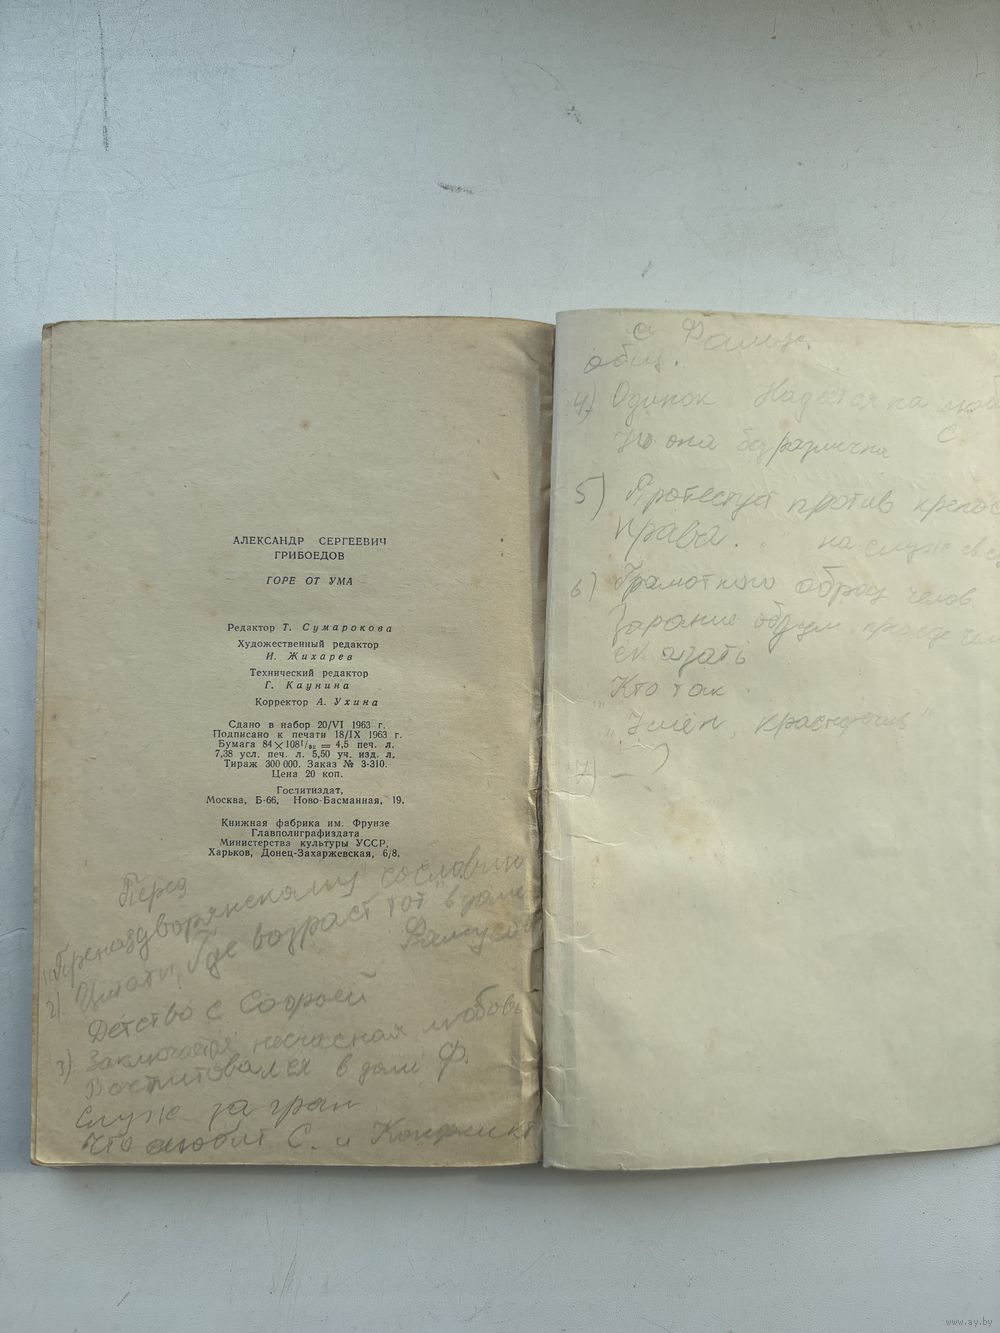 АЛЕКСАНДР СЕРГЕЕВИЧ
ГРИБОЕДОВ
ГОРЕ ОТ УМА
Редактор Т. Сумарокова
Художественный редактор
И. Жихарев
Технический редактор
Г. Каунина
Корректор А. Ухина
Сдано в набор 20/VI 1963 г.
Подписано к печати 18/IX 1963 г.
Бумага 84×108¹/₃₂ = 4,5 печ. л.
7,38 усл. печ. л. 5,50 уч. изд. л.
Тираж 300 000. Заказ № 3-310.
Цена 20 коп.
Гослитиздат,
Москва, Б-66, Ново-Басманная, 19.
Книжная фабрика им. Фрунзе
Главполиграфиздата
Министерства культуры УССР,
Харьков, Донец-Захаржевская, 6/8.
Перед
дворянскому" сословию
2). Цитаты, Где возраст тот" в доме
Фамусов
Детство с Софьей
3) несчасная любовь
Воспитовался в доме Ф.
Служ за гран
Что любит С. и Конфликт
с Фамус.
общ.
4) Одинок Надеется на люб
Но она безразлична С.
5) Протестует против крепос
права. . на служ
6) Грамотного образ челов
Заранее обдум прежде чем
сказать
Кто так
"Умён, красноречив"
7) –
www.ay.by